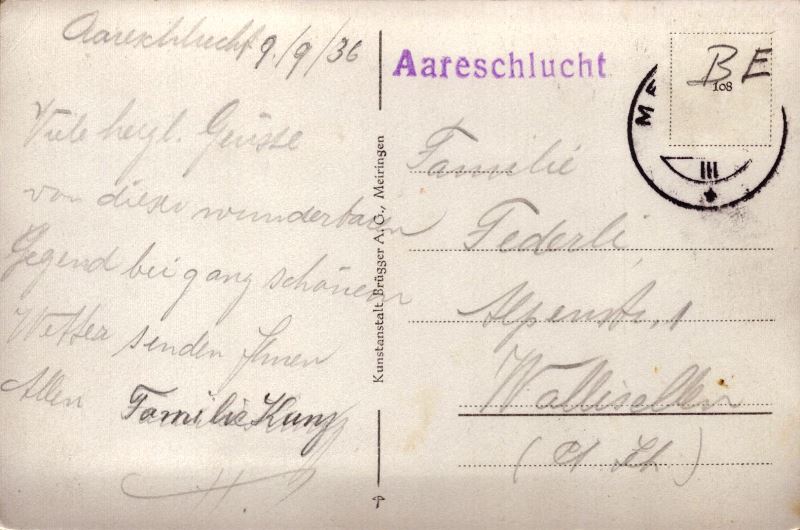 Aareschlucht 9./9/36
Viele herzl. Grüsse
von dieser wunderbaren
Gegend bei ganz schönem
Wetter senden Ihnen
Allen Familie Kunz
Kunstanstalt Brügger A. G., Meiringen
Aareschlucht
BE
108
ME
III
Familie
Federli
Alpenstr. 1
Wallisellen